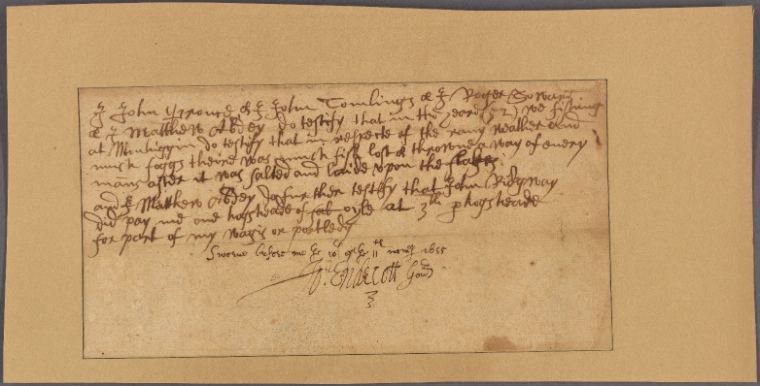 John & John Tomlings & Roger
& Matthew Abdey do testify that in the year (52) we fishing
at do testify that in respecte of the rany weather and
much foggs there was much fish lost & throwne away of every
mans after it was salted and laide upon the
and Matthew Abdey do further testify that John Ridgway
did pay me one hogsheade of oyle at 3 hogsheade
for part of my wages or portledg
Sworne before me 9 1655
Jo: Endecott Gov